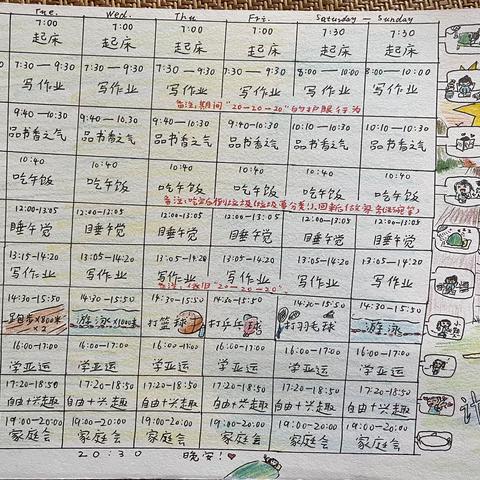 Tue. Wed. Thu Fri. Saturday — Sunday
7:00 7:00 7:00 7:00 7:30 7:30
起床 起床 起床 起床 起床 起床
7:30—9:30 7:30—9:30 7:30—9:30 7:30—9:30 8:00—10:00 8:00—10:00
写作业 写作业 写作业 写作业 写作业 写作业
备注:期间"20-20-20"的护眼行为
9:40-10:30 9:40-10:30 9:40-10:30 9:40-10:30 10:10-10:30 10:10-10:30
品书香之气 品书香之气 品书香之气 品书香之气 品书香之气 品书香之气
10:40 10:40 10:40 10:40 10:40 10:40
吃午饭 吃午饭 吃午饭 吃午饭 吃午饭 吃午饭
12:00-13:05 12:00-13:05 12:00-13:05 12:00-13:05 12:00-13:05 12:00-13:05
睡午觉 睡午觉 睡午觉 睡午觉 睡午觉 睡午觉
13:15-14:20 13:05-14:20 13:05-14:20 13:05-14:20 13:05-14:20 13:05-14:20
写作业 写作业 写作业 写作业 写作业 写作业
"20-20-20"
14:30-15:50 14:30-15:50 14:30-15:50 14:30-15:50 14:30-15:50 14:30-15:50
跑步×800米×2 游泳×1000米 打篮球 打乒乓球 打羽毛球 游泳
16:00-17:00 16:00-17:00 16:00-17:00 16:00-17:00 16:00-17:00 16:00-17:00
学亚运 学亚运 学亚运 学亚运 学亚运 学亚运
17:20-18:50 17:20-18:50 17:20-18:50 17:20-18:50 17:20-18:50 17:20-18:50
自由+兴趣 自由+兴趣 自由+兴趣 自由+兴趣 自由+兴趣 自由+兴趣
19:00-20:00 19:00-20:00 19:00-20:00 19:00-20:00 19:00-20:00 19:00-20:00
家庭会 家庭会 家庭会 家庭会 家庭会 家庭会
20:30 晚安!